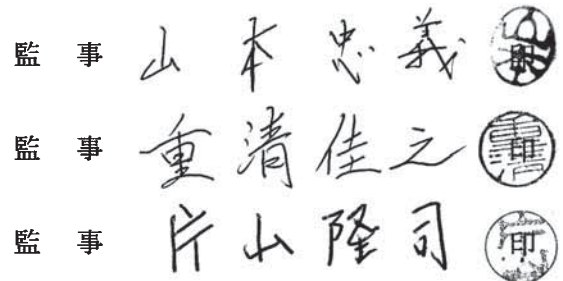 監 事 山 本 忠 義 印
監 事 重 清 佳 之 印
監 事 片 山 隆 司 印